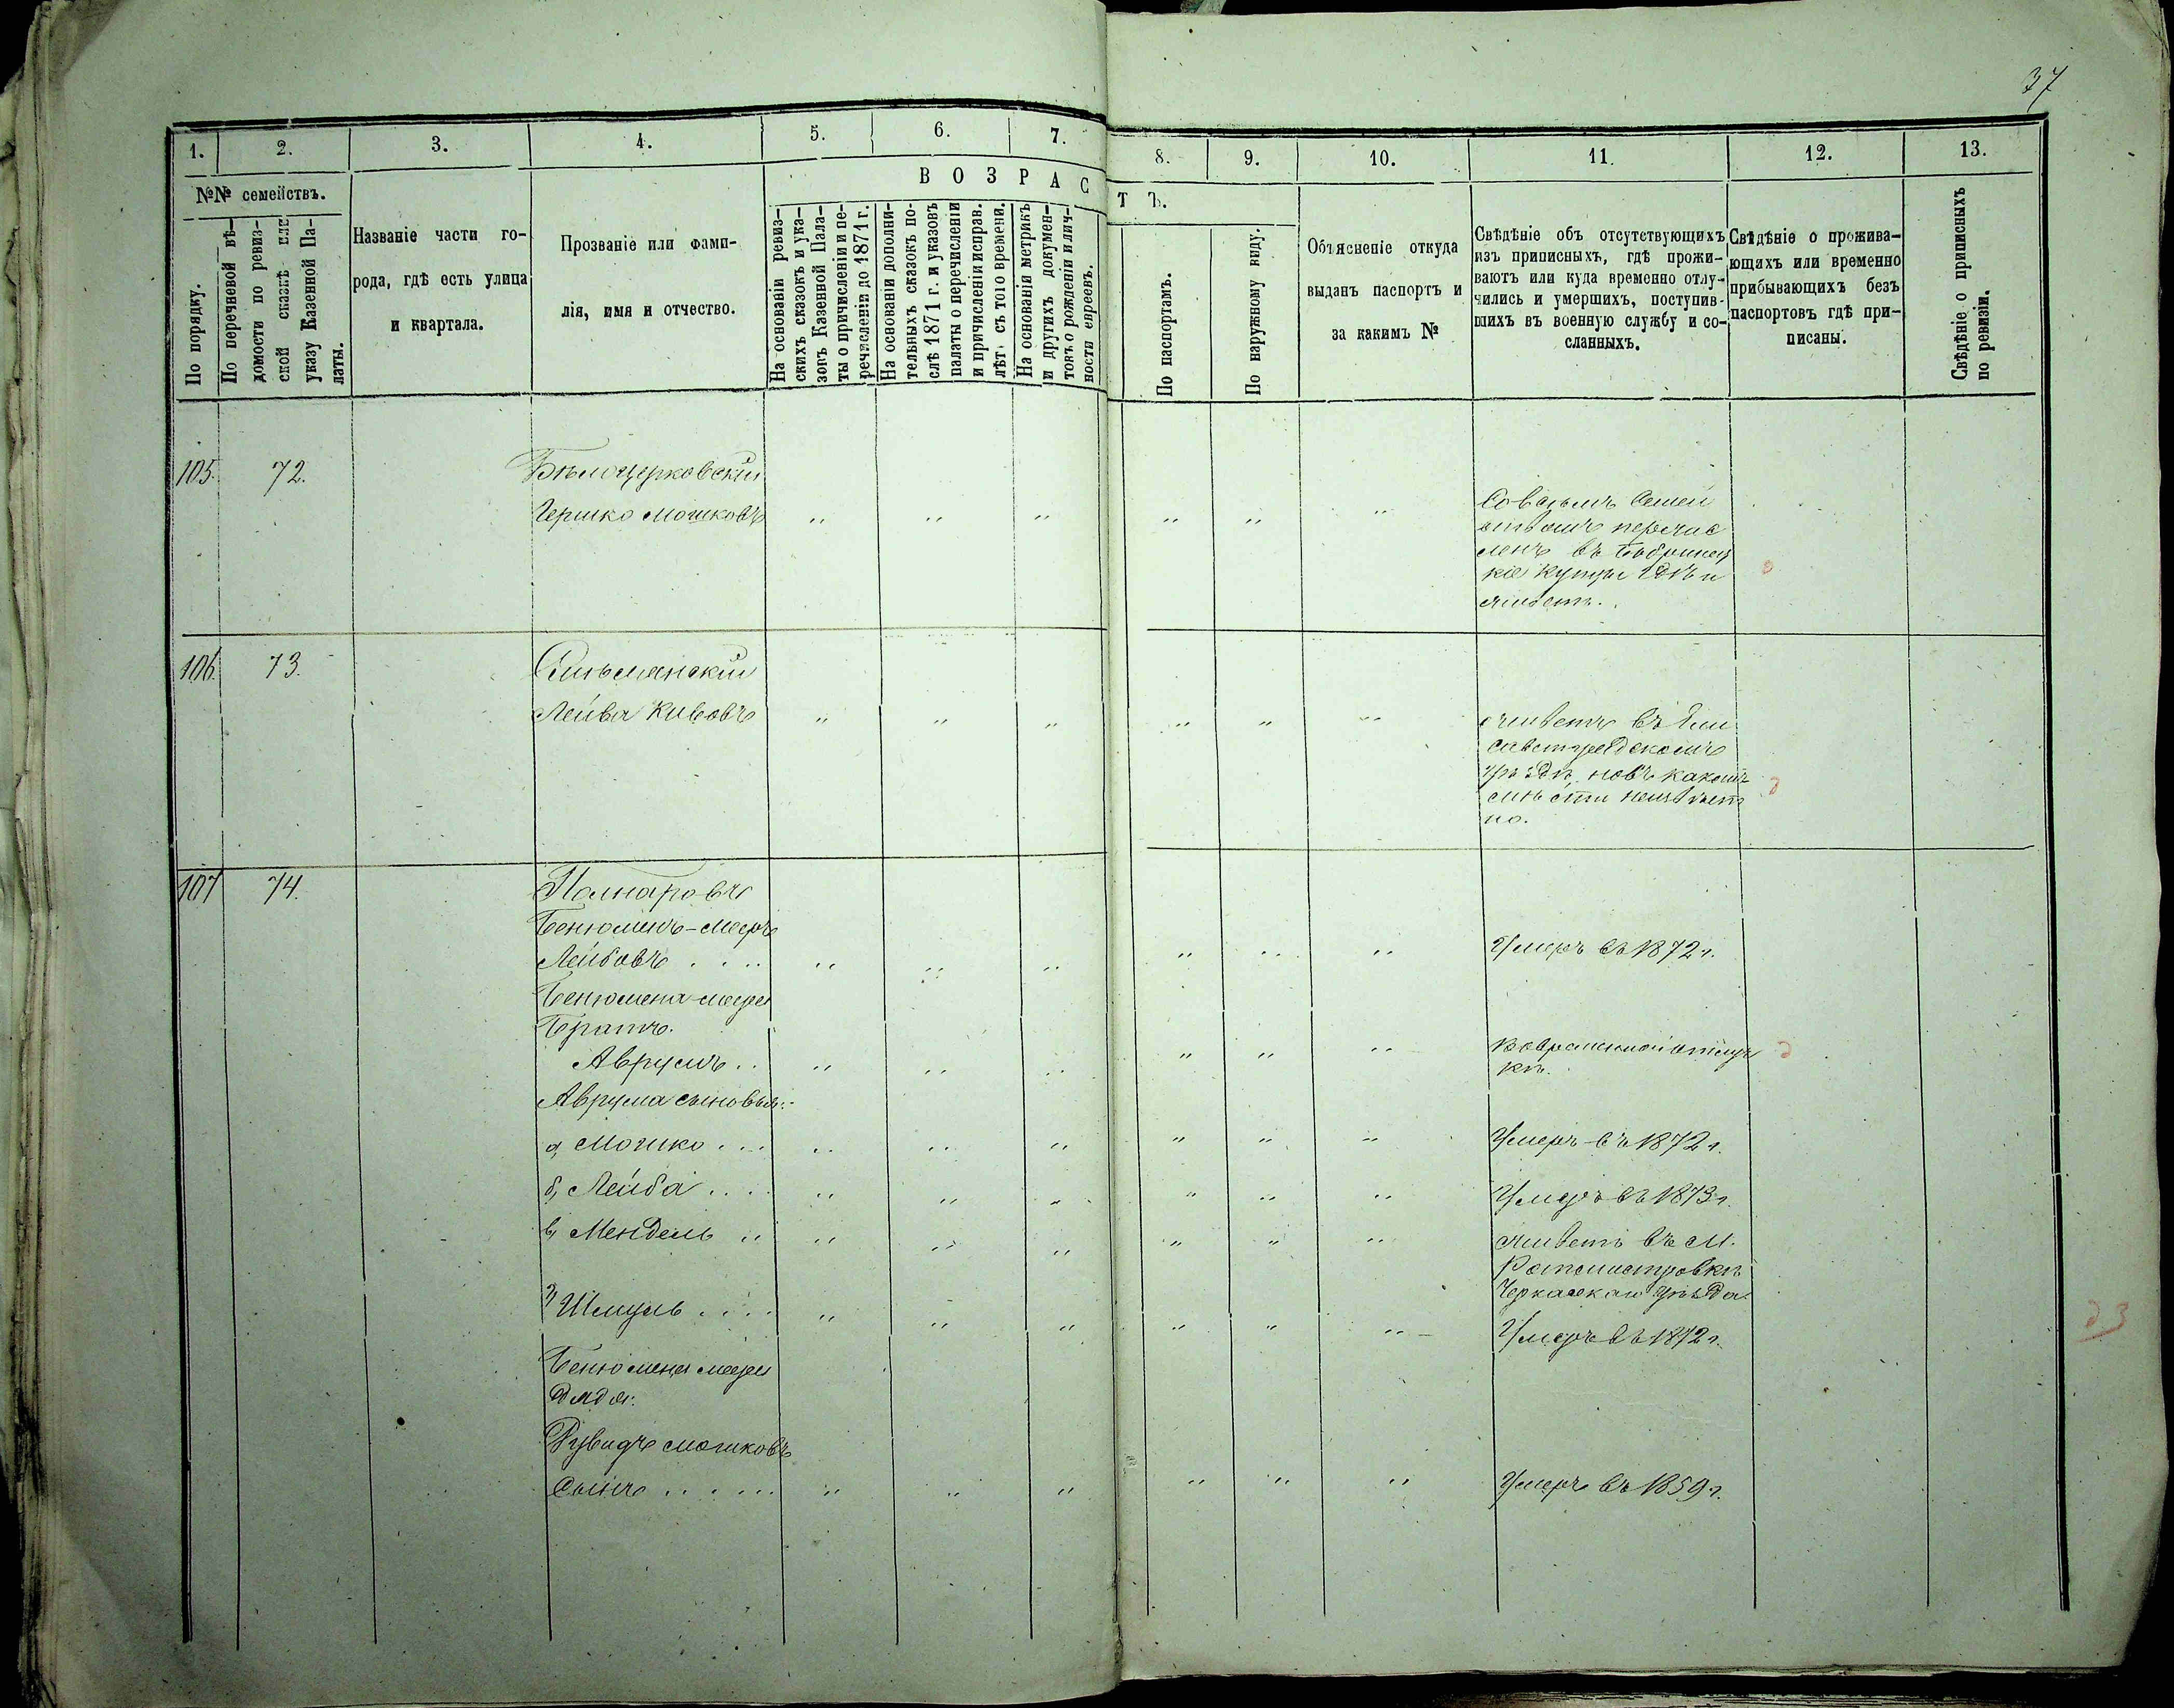 37
1. 2. 3. 4. 5. 6. 7. 8. 9. 10. 11. 12. 13.
№№ семействъ.
По порядку.
По перечневой вѣ-
домости по ревиз-
ской сказкѣ или
указу Казенной Па-
латы.
Названіе части го-
рода, гдѣ есть улица
и квартала.
Прозваніе или фами-
лія, имя и отчество.
ВОЗРАСТЪ.
На основаніи ревиз-
скихъ сказокъ и ука-
зовъ Казенной Пала-
ты о причисленіи и пе-
речисленіи до 1871 г.
На основаніи дополни-
тельныхъ сказокъ по-
слѣ 1871 г. и указовъ
палаты о перечисленіи
и причисленіи исправ.
лѣтъ съ того времени.
На основаніи метрикъ
и другихъ докумен-
товъ о рожденіи и лич-
ности евреевъ.
По паспортамъ.
По наружному виду.
Объясненіе откуда
выданъ паспортъ и
за какимъ №
Свѣдѣніе объ отсутствующихъ
изъ приписныхъ, гдѣ прожи-
ваютъ или куда временно отлу-
чились и умершихъ, поступив-
шихъ въ военную службу и со-
сланныхъ.
Свѣдѣніе о прожива-
ющихъ или временно
прибывающихъ безъ
паспортовъ гдѣ при-
писаны.
Свѣдѣніе о приписныхъ
по ревизіи.
105. 72.
Бѣлоцерковскій
Гершко Мошковъ " " " " " "
Совсѣмъ семей
ствомъ перечис
ленъ въ Бобринец
кіе купцы гдѣ и
живетъ.
106. 73.
Лейба Кивовъ " " " " " "
живетъ въ Ели
саветградскомъ
уѣздѣ, но въ какомъ
мѣсти неизвѣст
но.
107 74.
Бенюминъ-Мееръ
Лейбовъ . . . . " " " " " " Умеръ въ 1872 г.
Бенюмена-меера
братъ.
Аврумъ . . " " " " " " Вовременной отлуч
кѣ.
Аврума сыновья:-
а, Мошко . . . " " " " " " Умеръ въ 1872 г.
б, Лейба . . . . " " " " " " Умеръ въ 1873 г.
в, Мендель .. " " " " " " живетъ въ м.
Ротмистровкѣ
Черкаскаго уѣзда.
г, Шмуль . . . . " " " " " " Умеръ въ 1872 г.
Бенюмена меера
дядя:
Рувидъ мошковъ
Сынъ . . . . . . " " " " " " Умеръ въ 1859 г.